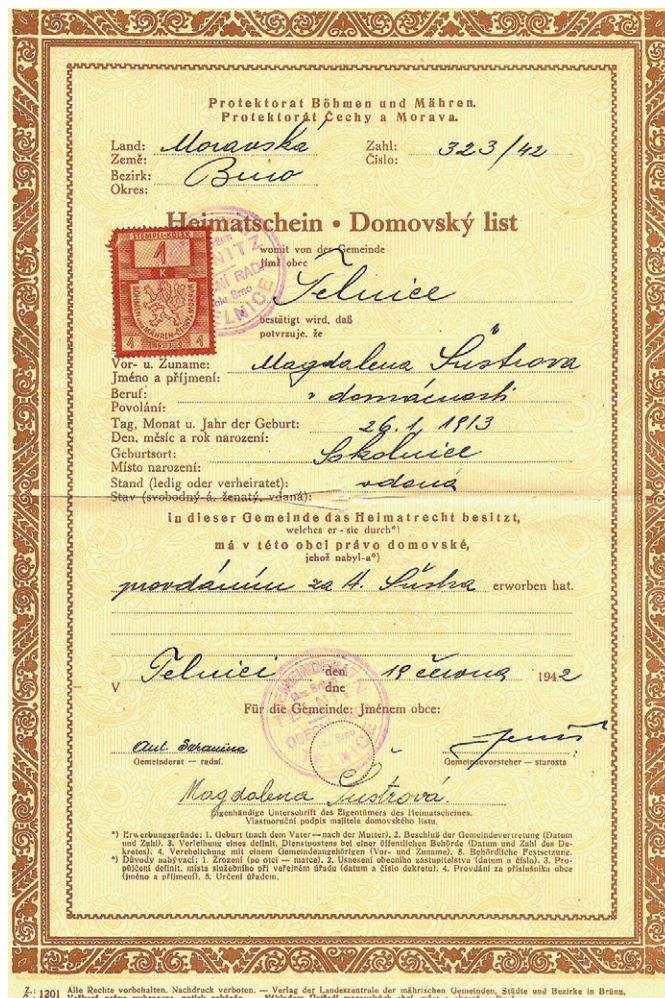 Protektorat Böhmen und Mähren.
Protektorát Čechy a Morava.
Land: Moravská Zahl: 323/42
Země: Číslo:
Bezirk: Brno
Okres:
Heimatschein • Domovský list
STEMPEL-KOLEK
1
K
womit von der Gemeinde
jímž obec
Telnice
bestätigt wird, daß
potvrzuje, že
Vor- u. Zuname: Magdalena Šustrova
Jméno a příjmení:
Beruf: v domácnosti
Povolání:
Tag, Monat u. Jahr der Geburt: 26.1. 1913
Den, měsíc a rok narození:
Geburtsort: Sokolnice
Místo narození:
Stand (ledig oder verheiratet): vdaná
Stav (svobodný-á, ženatý, vdaná):
in dieser Gemeinde das Heimatrecht besitzt,
welches er - sie durch*)
má v této obci právo domovské,
jehož nabyl-a*)
provdáním za A. Šustra erworben hat.
V Telnici den 19 června 1942
dne
Für die Gemeinde: Jménem obce:
Gemeinderat — radní. Gemeindevorsteher — starosta
Magdalena Šustrová.
Eigenhändige Unterschrift des Eigentümers des Heimatscheines.
Vlastnoruční podpis majitele domovského listu.
*) Erwerbungsgründe: 1. Geburt (nach dem Vater — nach der Mutter). 2. Beschluß der Gemeindevertretung (Datum
und Zahl). 3. Verleihung eines definit. Dienstpostens bei einer öffentlichen Behörde (Datum und Zahl des De-
kretes). 4. Verehelichung mit einem Gemeindeangehörigen (Vor- und Zuname). 5. Behördliche Festsetzung.
*) Důvody nabývací: 1. Zrození (po otci — matce). 2. Usnesení obecního zastupitelstva (datum a číslo). 3. Pro-
půjčení definit. místa služebního při veřejném úřadu (datum a číslo dekretu). 4. Provdání za příslušníka obce
(jméno a příjmení). 5. Určení úřadem.
Z.: 1201 Alle Rechte vorbehalten. Nachdruck verboten. — Verlag der Landeszentrale der mährischen Gemeinden, Städte und Bezirke in Brünn.